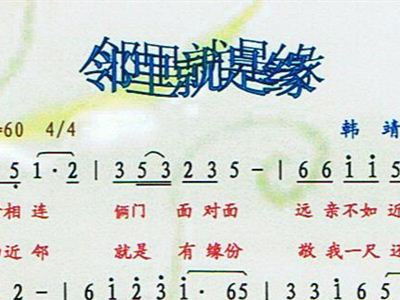 邻里就是缘
=60 4/4 韩 靖
5 1·2 | 3 5 3 2 3 5 – | 6 6 i i
相 连 俩门 面 对面 远 亲不如 近
近 邻 就是 有 缘份 敬 我一尺 还
2 – | 6 i 2 3 i· 6 5 | 5 3 5 2